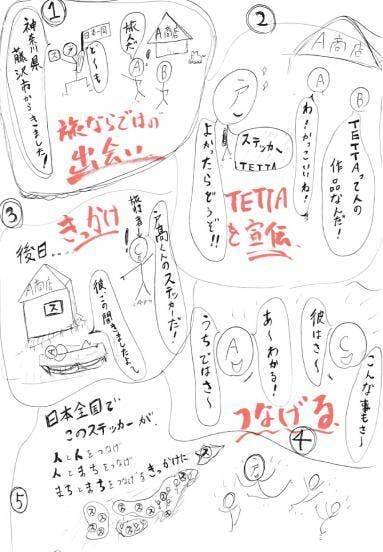 ①
神奈川県
藤沢市からきました!
ス
ア
日本一周
ど〜も
旅人だ
A
B
A商店
旅ならではの
出会い
②
A商店
ア
ステッカー
TETTA
よかったらどうぞ!!
A
わ!かっこいいね!
B
TETTAって人の
作品なんだ!
TETTA
を宣伝、
③
きっかけ
後日...
A商店
ス
C
ア高くんのステッカーだ!
彼、この間きましたよ〜
④
A
あ〜わかる!
うちではさ〜
C
彼はさ〜
こんな事もさ〜
つなげる、
ア
⑤
日本全国で
このステッカーが、
人と人をつなげ
人とまちをつなげ
まちとまちをつなげるきっかけに
ス